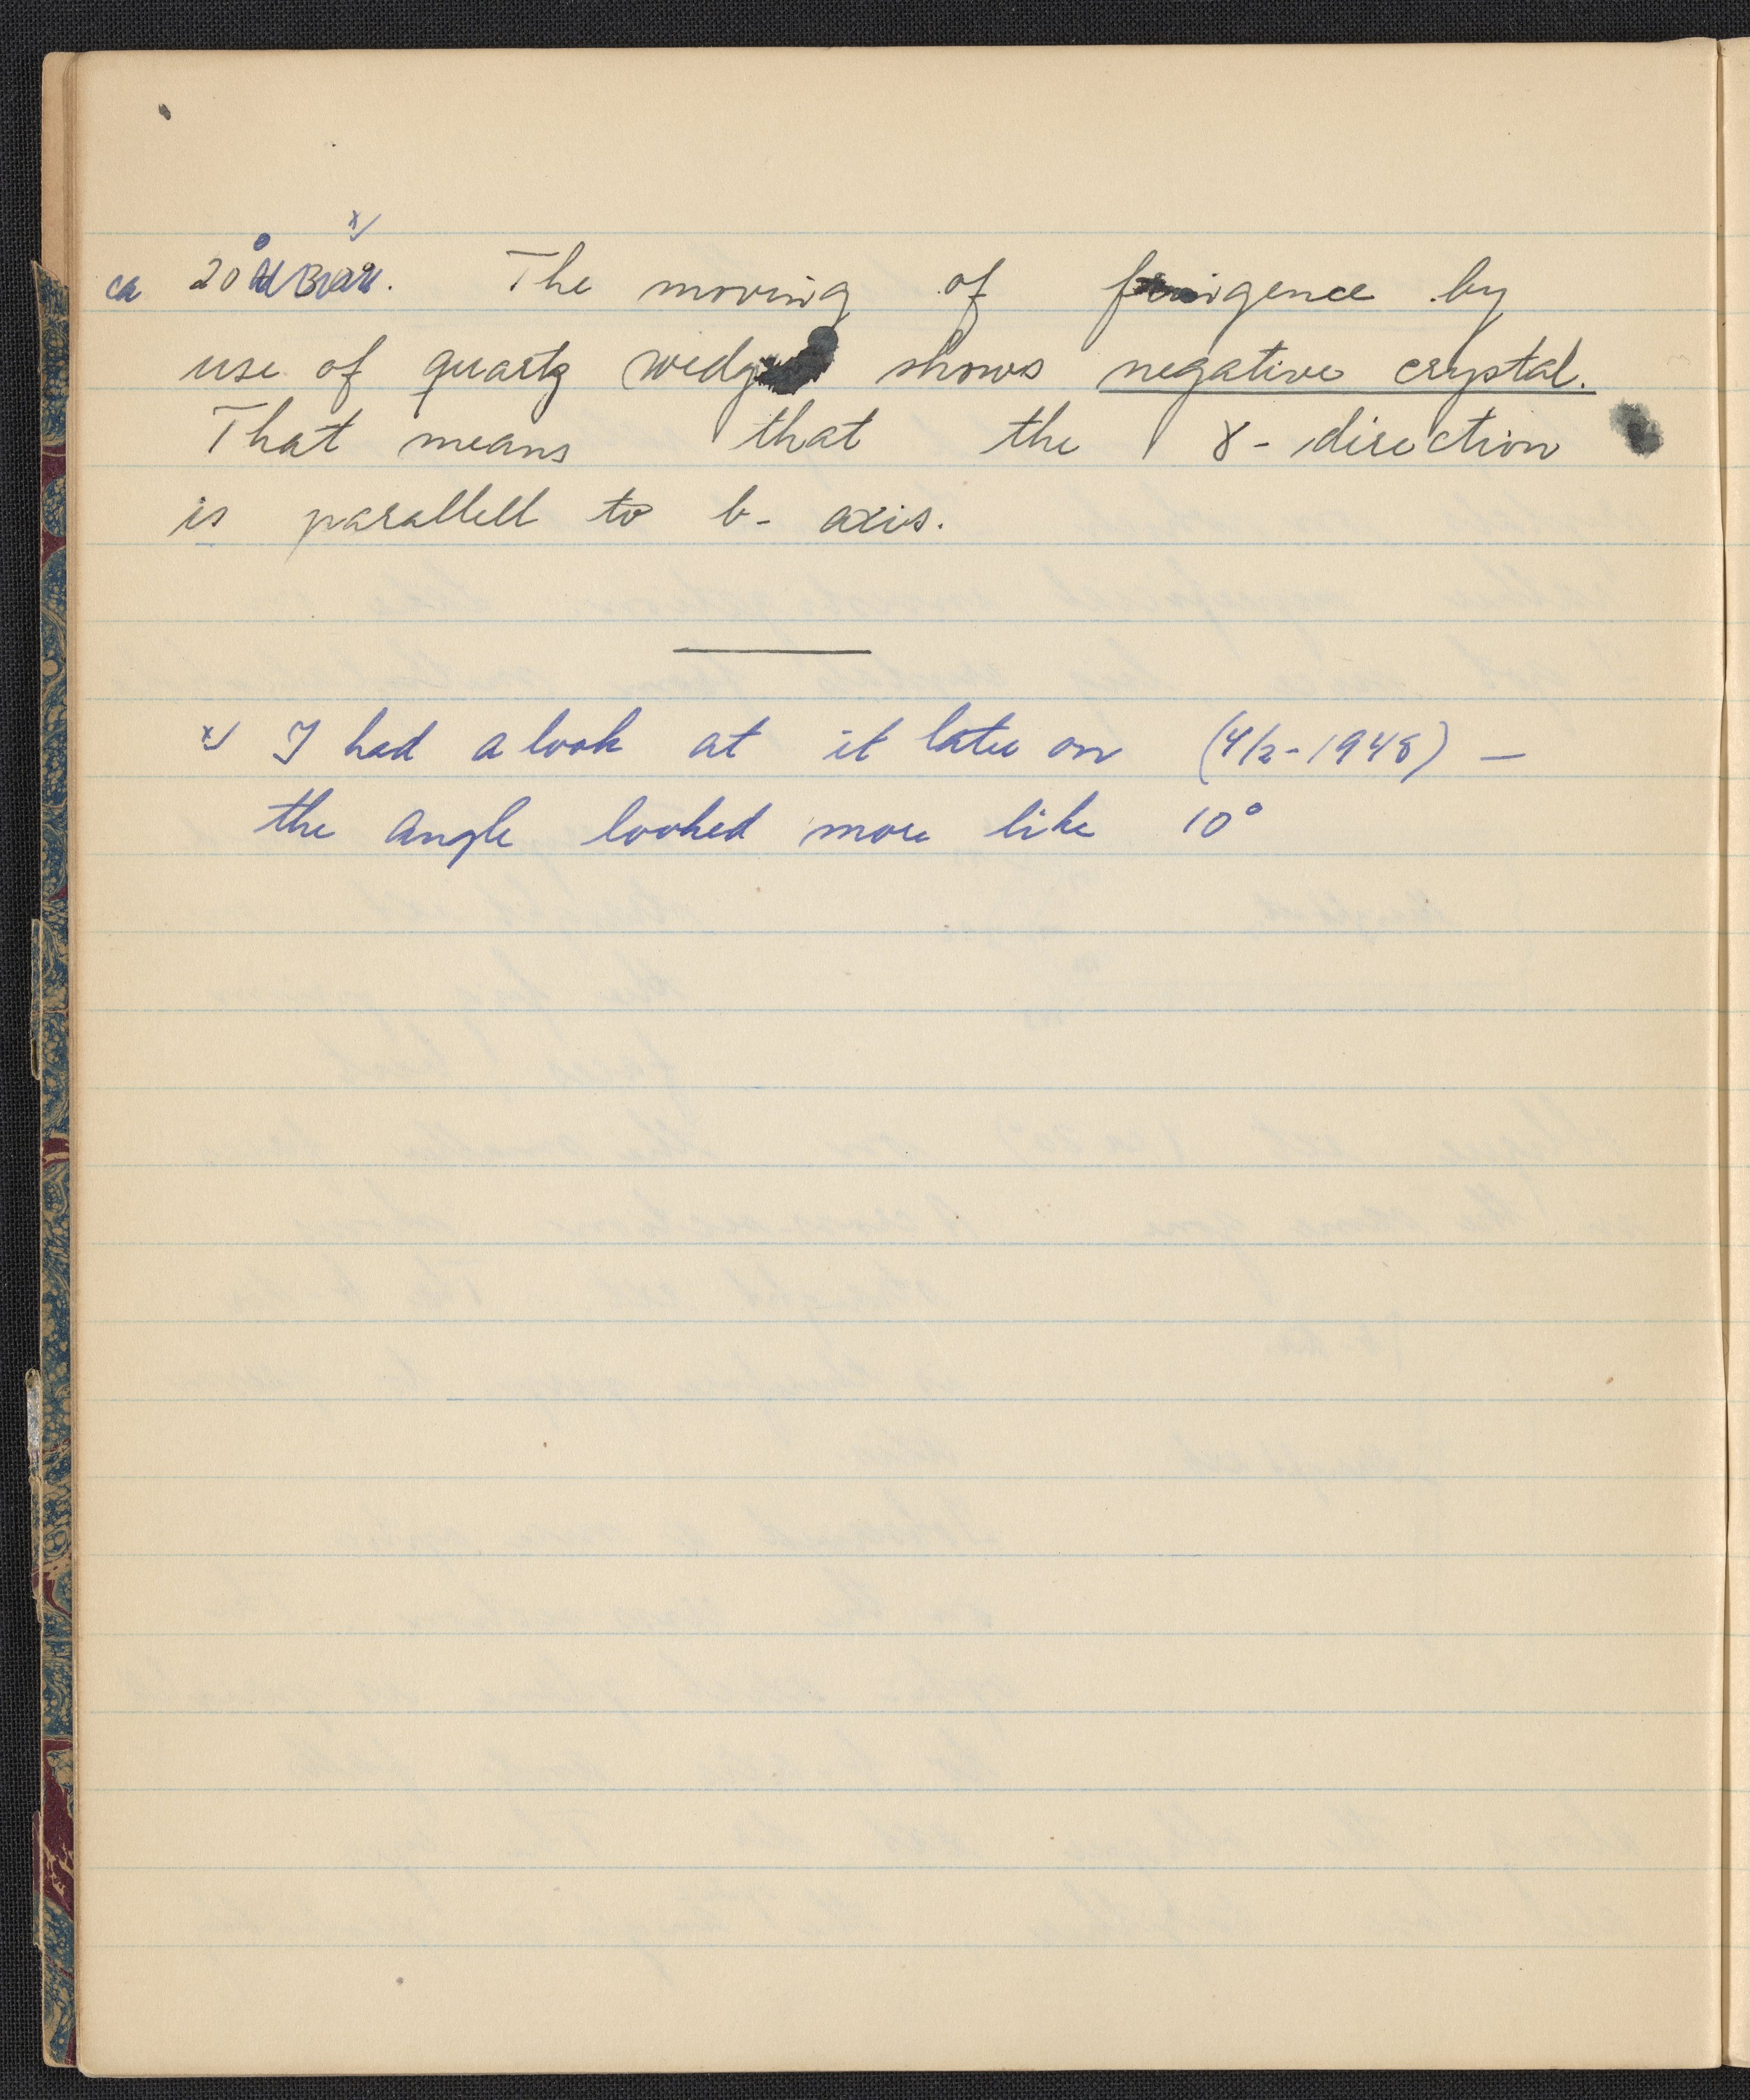 x/
ca 20° . The moving of fringence by
use of quartz wedge shows negative crystal.
That means that the γ- direction
is parallell to b- axis.
x/ I had a look at it later on (4/2-1948) —
the angle looked more like 10°